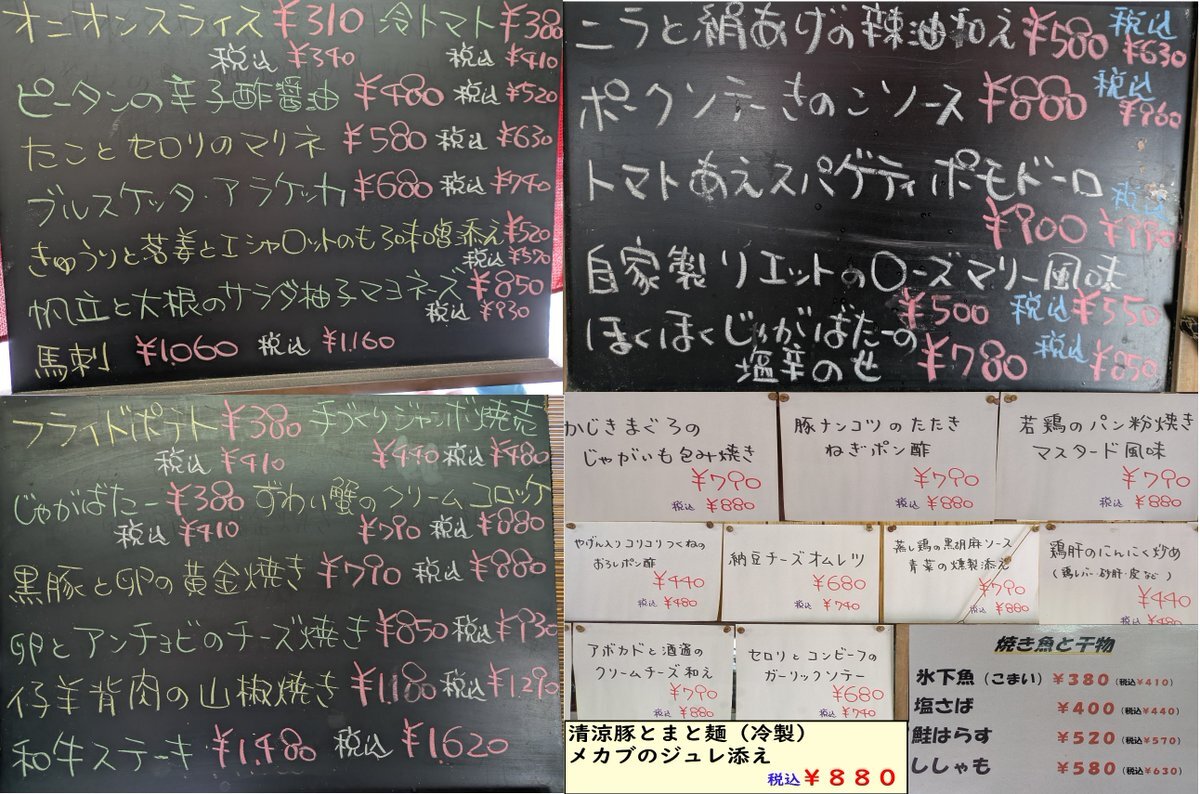 オニオンスライス ¥310 冷トマト ¥380
税込 ¥340 税込 ¥410
ピータンの辛子酢醤油 ¥480 税込 ¥520
たことセロリのマリネ ¥580 税込 ¥630
ブルスケッタ・アラケッカ ¥680 税込 ¥740
きゅうりと茗姜とエシャロットのもろ味噌添え ¥520
税込 ¥570
帆立と大根のサラダ柚子マヨネーズ ¥850
税込 ¥930
馬刺 ¥1,060 税込 ¥1,160
ニラと絹あげの辣油和え ¥580 税込 ¥630
ポークソテーきのこソース ¥880 税込 ¥960
トマトあえスパゲティポモドーロ
¥900 税込 ¥990
自家製リエットのローズマリー風味
¥500 税込 ¥550
ほくほくじゃがばたーの
塩辛のせ ¥780 税込 ¥850
フライドポテト ¥380 手づくりジャンボ焼売
税込 ¥410 ¥440 税込 ¥480
じゃがばたー ¥380 ずわい蟹のクリームコロッケ
税込 ¥410 ¥790 税込 ¥880
黒豚と卵の黄金焼き ¥790 税込 ¥880
卵とアンチョビのチーズ焼き ¥850 税込 ¥930
仔羊背肉の山椒焼き ¥1,180 税込 ¥1,290
和牛ステーキ ¥1,480 税込 ¥1,620
かじきまぐろの
じゃがいも包み焼き
¥790
税込 ¥880
豚ナンコツのたたき
ねぎポン酢
¥790
税込 ¥880
若鶏のパン粉焼き
マスタード風味
¥790
税込 ¥880
やげん入りコリコリつくねの
おろしポン酢
¥440
税込 ¥480
納豆チーズオムレツ
¥680
税込 ¥740
蒸し鶏の黒胡麻ソース
青菜の燻製添え
¥790
税込 ¥880
鶏肝のにんにく炒め
(鶏レバー・砂肝・皮など)
¥440
税込 ¥480
アボカドと酒盗の
クリームチーズ和え
¥790
税込 ¥880
セロリとコンビーフの
ガーリックソテー
¥680
税込 ¥740
清涼豚とまと麺（冷製）
メカブのジュレ添え
税込¥880
焼き魚と干物
氷下魚（こまい）¥380（税込¥410）
塩さば ¥400（税込¥440）
鮭はらす ¥520（税込¥570）
ししゃも ¥580（税込¥630）